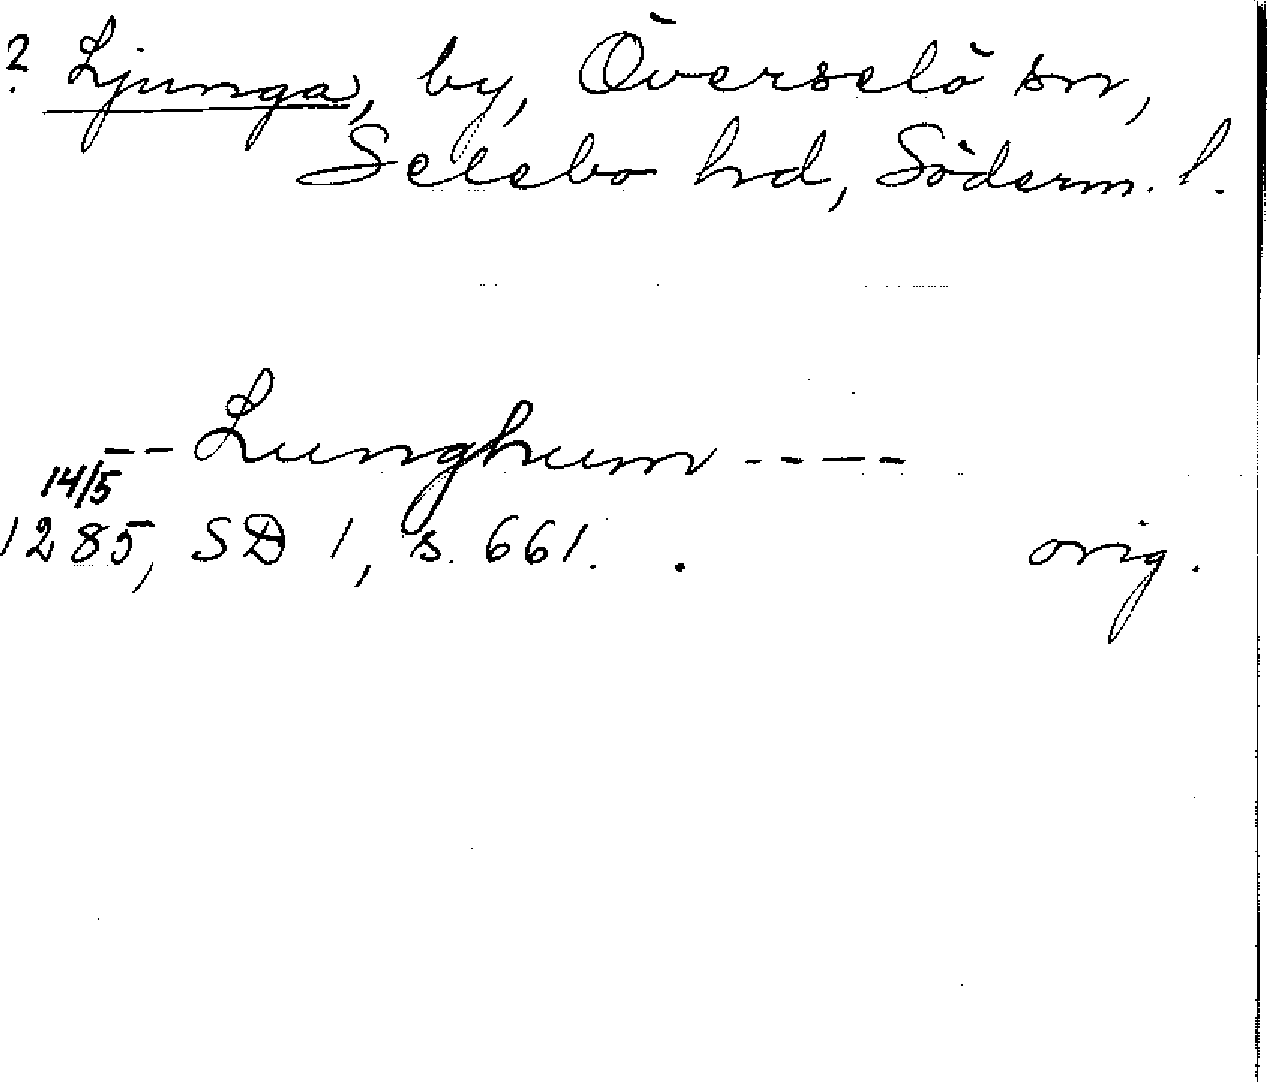 ? Ljunga, by, Överselö sn,
Selebo hd, Söderm. l.
-- Lunghum ----
14/5
1285, SD 1, s. 661. orig.